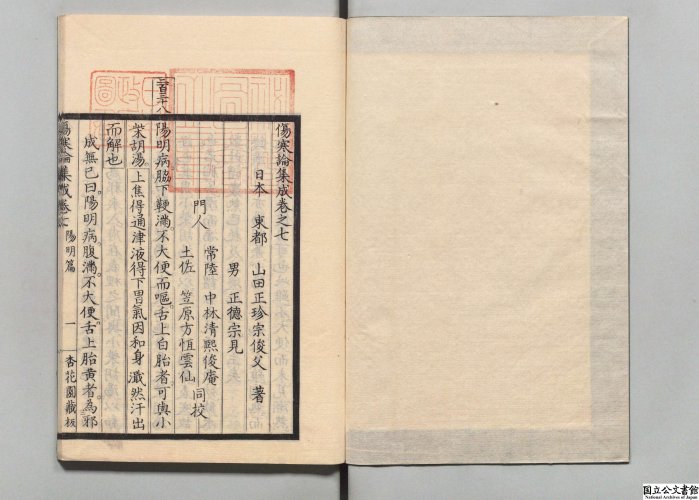 傷寒論集成卷之七
日本 東都 山田正珍宗俊父 著
男 正德宗見
門人 常陸 中林清熙俊庵
土佐 笠原方恆雲仙 同校
二百三十八
陽明病脇下鞕滿不大便而嘔舌上白胎者可與小
柴胡湯上焦得通津液得下胃氣因和身濈然汗出
而解也
成無已曰陽明病腹滿不大便舌上胎黃者為邪
傷寒論集成卷七 陽明篇 一 杏花園藏板
国立公文書館
National Archives of Japan